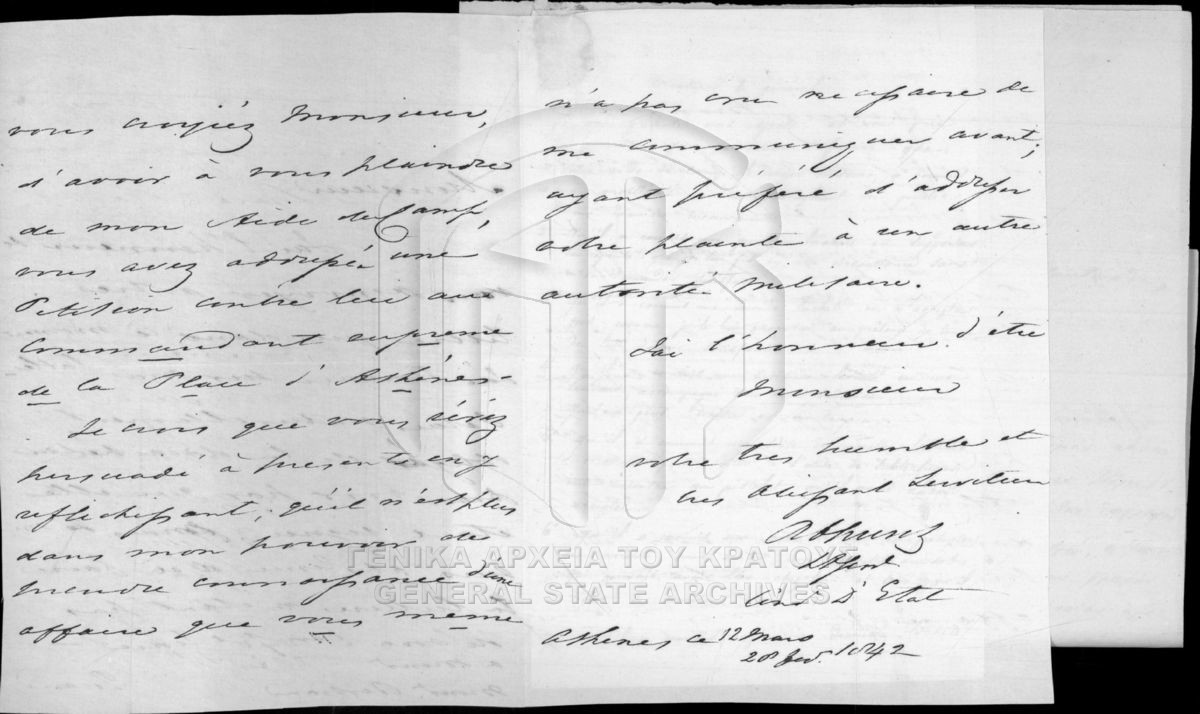 vous croyiéz Monsieur,
d'avoir à vous plaindre
de mon Aide de Camp,
vous avez addressé une
Petition contre lui au
Commandant supreme
de la Place d'Athènes.
Je crois que vous sérez
persuadé à present en y
reflechissant, qu'il n'est plus
dans mon pouvoir de
prendre connoissance d'une
affaire que vous meme
n'a pas cru necessaire de
me communiquer avant;
ayant préféré d'addresser
votre plainte à un autre
autorité militaire.
J'ai l'honneur d'étre
Monsieur
votre tres humble et
tres obeissant Serviteur
D'Etat
Athenes ce 12 Mars
28 fev. 1842
ΓΕΝΙΚΑ ΑΡΧΕΙΑ ΤΟΥ ΚΡΑΤΟΥΣ
GENERAL STATE ARCHIVES